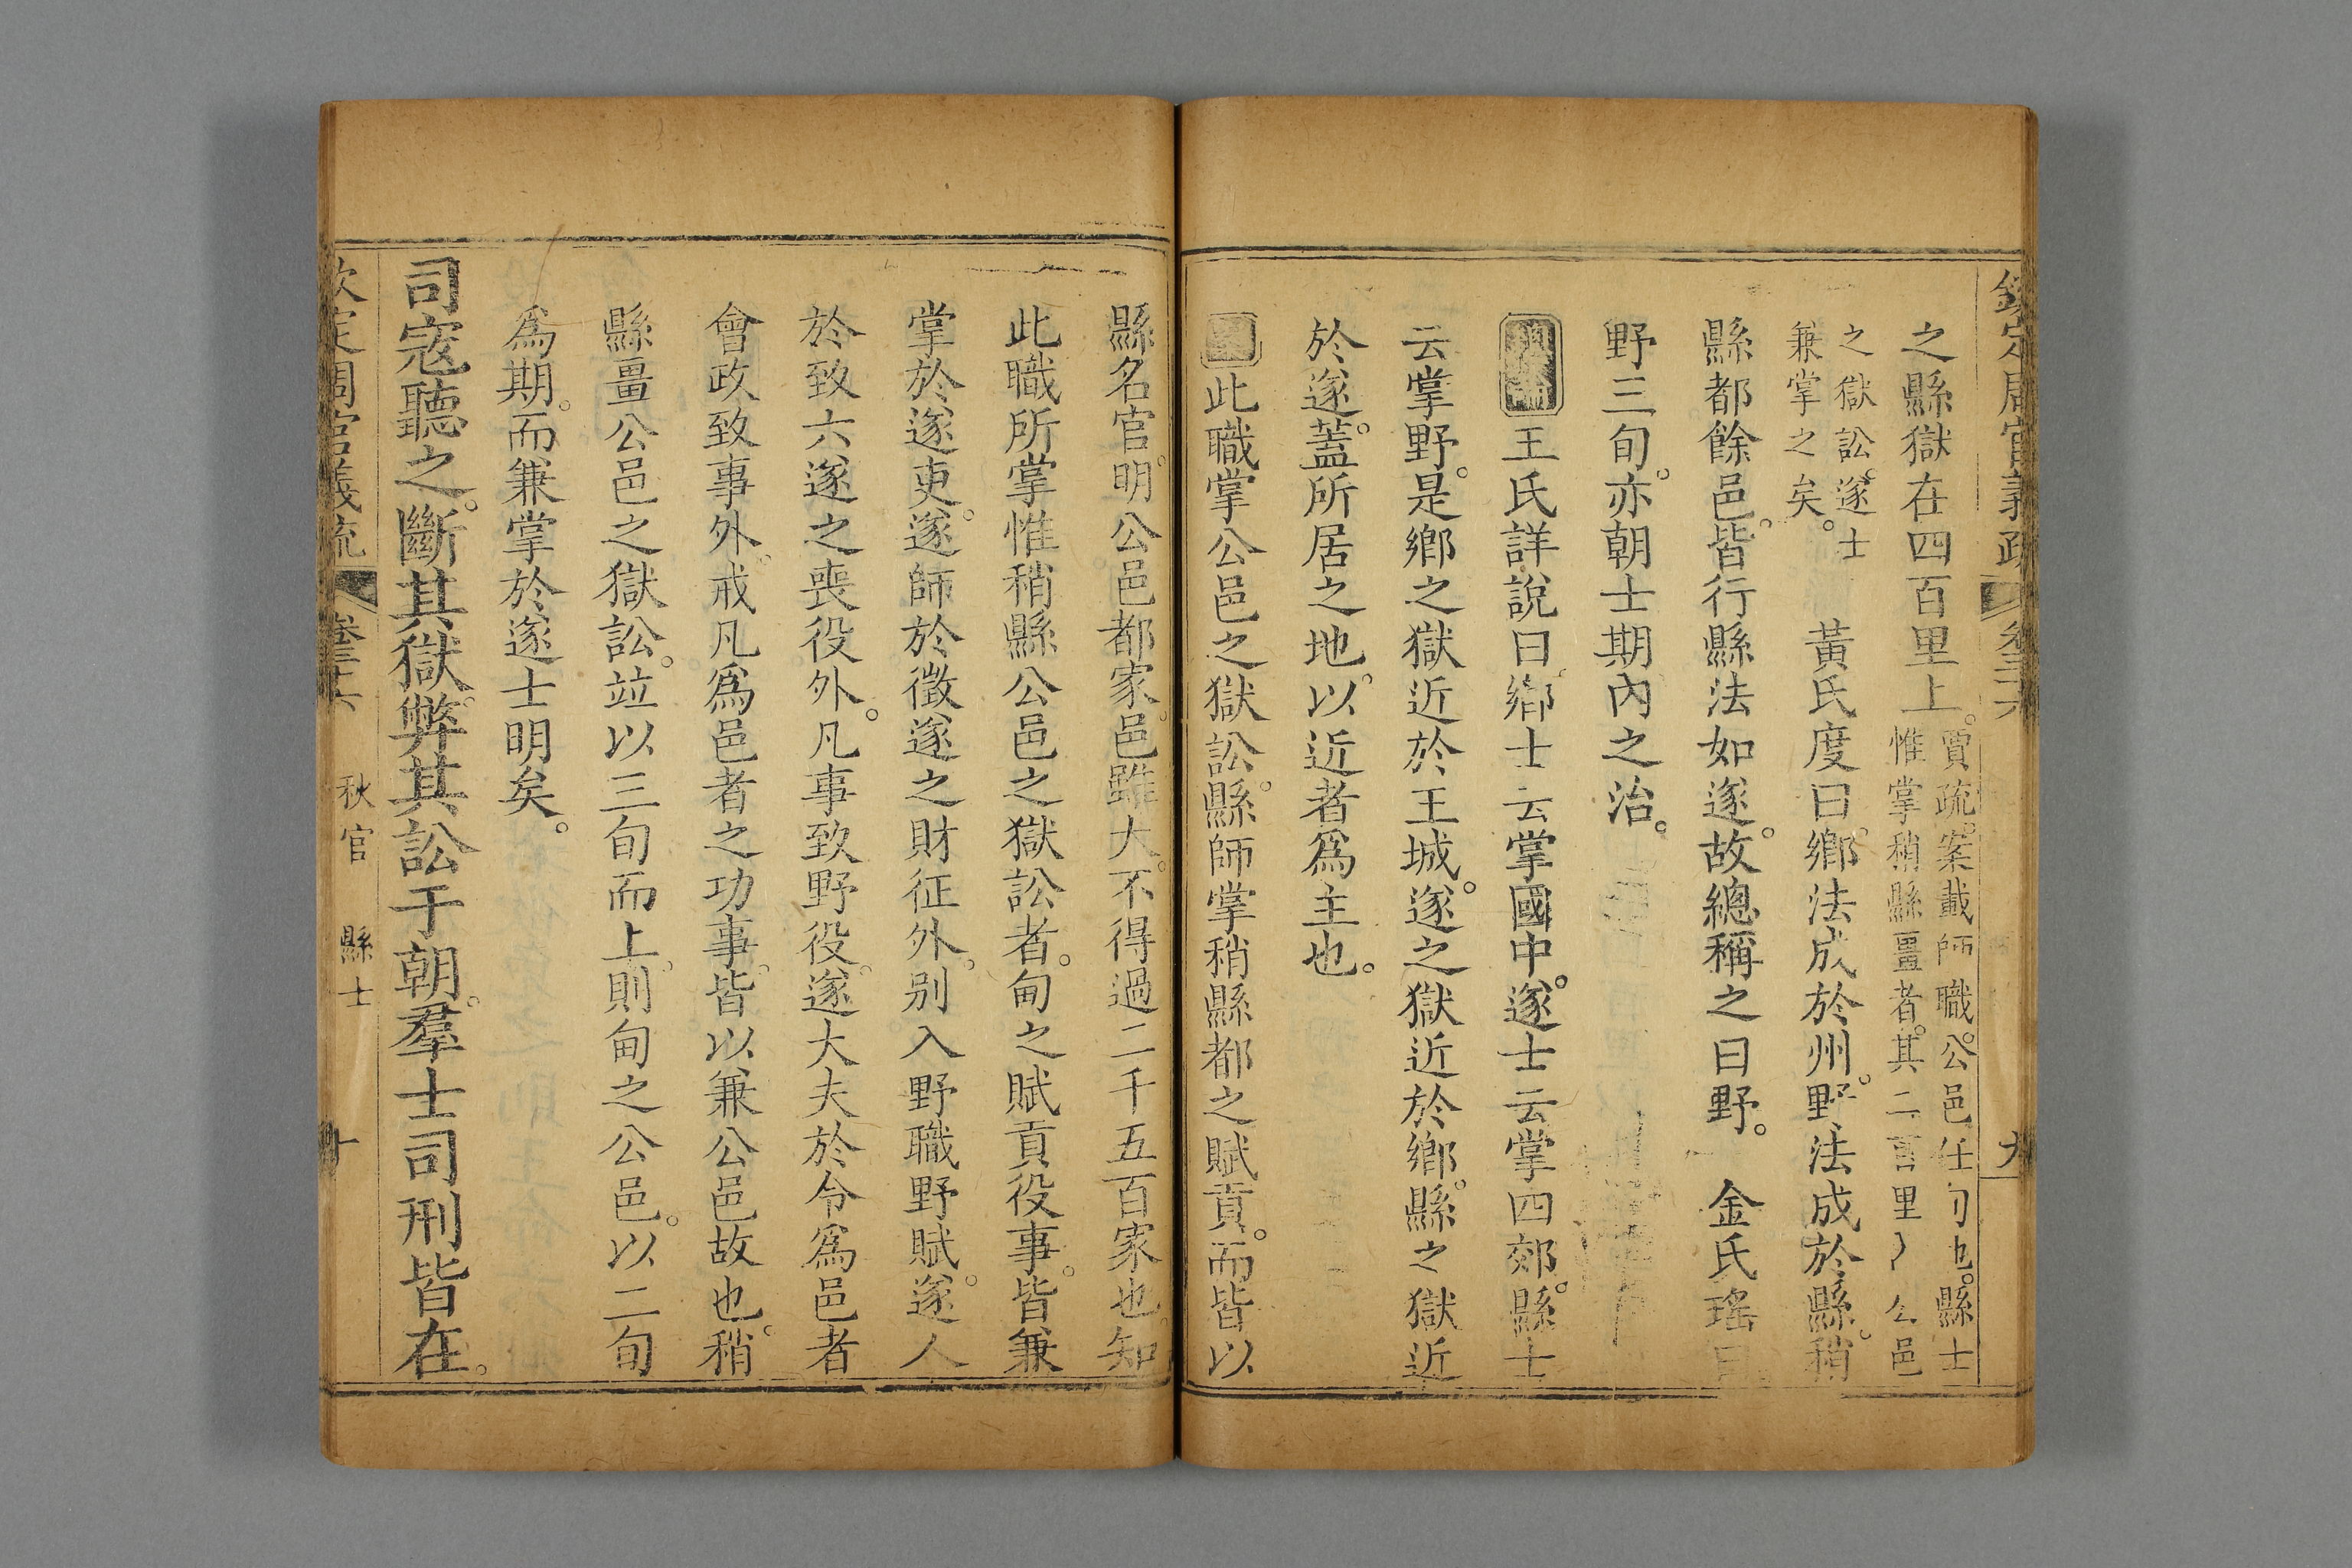 欽定周官義疏 卷三十六 九
之縣獄在四百里上。賈疏。案載師職。公邑任甸也。縣士惟掌稍縣畺者。其二百里 公邑
之獄訟。遂士兼掌之矣。 黃氏度曰。鄉法成於州。野法成於縣。稍
縣都餘邑。皆行縣法如遂。故總稱之曰野。 金氏瑤曰
野三旬。亦朝士期內之治。
王氏詳說曰。鄉士云掌國中。遂士云掌四郊。縣士
云掌野。是鄉之獄近於王城。遂之獄近於鄉。縣之獄近
於遂。蓋所居之地。以近者爲主也。
此職掌公邑之獄訟。縣師掌稍縣都之賦貢。而皆以
縣名官。明公邑都家。邑雖大。不得過二千五百家也。知
此職所掌惟稍縣公邑之獄訟者。甸之賦貢役事。皆兼
掌於遂吏。遂師於徵遂之財征外。別入野職野賦。遂人
於致六遂之喪役外。凡事致野役。遂大夫於令爲邑者
會政致事外。戒凡爲邑者之功事。皆以兼公邑故也。稍
縣畺公邑之獄訟。竝以三旬而上。則甸之公邑。以二旬
爲期。而兼掌於遂士明矣。
司寇聽之。斷其獄。弊其訟于朝。羣士司刑皆在。
欽定周官義疏 卷三十六 秋官 縣士 十